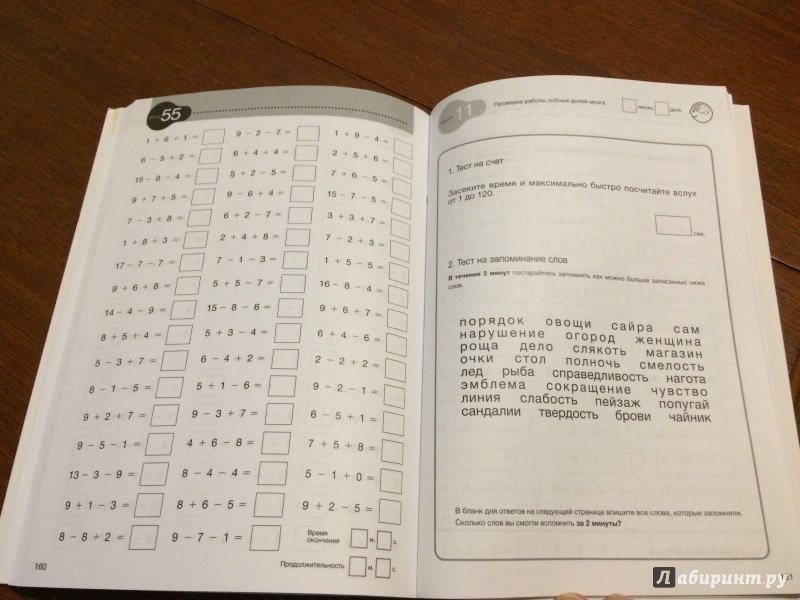 55
1 + 6 + 1 =
9 − 2 − 7 =
1 + 9 − 4 =
6 − 5 + 2 =
6 + 4 + 4 =
2 + 5 + 6 =
15 − 8 − 4 =
5 + 2 − 5 =
7 + 6 − 5 =
9 + 7 + 5 =
9 − 6 + 4 =
15 − 7 − 5 =
7 − 3 + 8 =
6 + 2 − 7 =
3 + 3 + 7 =
1 + 8 + 3 =
2 + 4 + 8 =
7 − 2 + 3 =
17 − 7 − 7 =
7 − 1 − 3 =
1 + 5 − 5 =
9 + 6 + 8 =
5 + 5 − 7 =
16 − 8 − 4 =
14 − 4 − 9 =
15 − 8 − 6 =
9 + 6 + 7 =
8 + 5 + 4 =
5 + 3 − 4 =
6 + 4 − 6 =
5 − 3 + 7 =
6 − 4 + 2 =
2 − 2 + 2 =
8 − 1 − 5 =
5 + 1 − 6 =
9 − 2 − 1 =
9 + 2 + 7 =
9 − 3 + 7 =
6 − 5 + 1 =
9 − 5 − 1 =
4 + 6 − 8 =
7 + 5 + 8 =
13 − 3 − 9 =
8 − 4 − 4 =
5 − 1 + 0 =
9 + 1 − 3 =
8 + 6 − 5 =
9 + 2 − 5 =
8 − 8 + 2 =
9 − 7 − 1 =
Время
окончания
м.
с.
160
Продолжительность
м.
с.
11
Проверка работы лобных долей мозга
месяц
день
1. Тест на счет
Засеките время и максимально быстро посчитайте вслух
от 1 до 120.
сек.
2. Тест на запоминание слов
В течение 2 минут постарайтесь запомнить как можно больше записанных ниже
слов.
порядок овощи сайра сам
нарушение огород женщина
роща дело слякоть магазин
очки стол полночь смелость
лед рыба справедливость нагота
эмблема сокращение чувство
линия слабость пейзаж попугай
сандалии твердость брови чайник
В бланк для ответов на следующей странице впишите все слова, которые запомнили.
Сколько слов вы смогли вспомнить за 2 минуты?
Лабиринт.ру